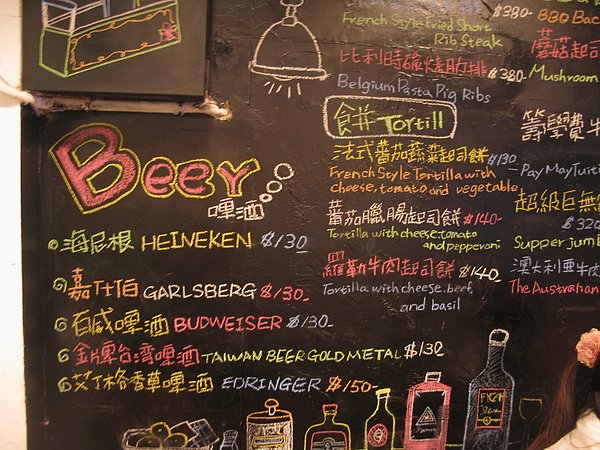 Beer
啤酒
海尼根 HEINEKEN $130
嘉仕伯 GARLSBERG $130-
百威啤酒 BUDWEISER $130-
金牌台湾啤酒 TAIWAN BEER GOLD METAL $130
艾丁格香草啤酒 EDRINGER $150-
$380-
French Style Fried Short
Rib Steak
比利時碳烤肋排 $380-
Belgium Pasta Pig Ribs
餅 Tortill
法式蕃茄蔬菜起司餅 $130
French Style Tortilla with
cheese, tomato and vegetable
蕃茄臘腸起司餅 $140-
Tortilla with cheese, tomato
and pepperoni
羅勒牛肉起司餅 $140-
Tortilla with cheese, beef,
and basil
BBQ Bac
蘑菇起司
Mushroom
籌學費牛
-Pay May Tuiti
超級巨無
$320
Supper jumb
澳大利亜牛肉
The Australian